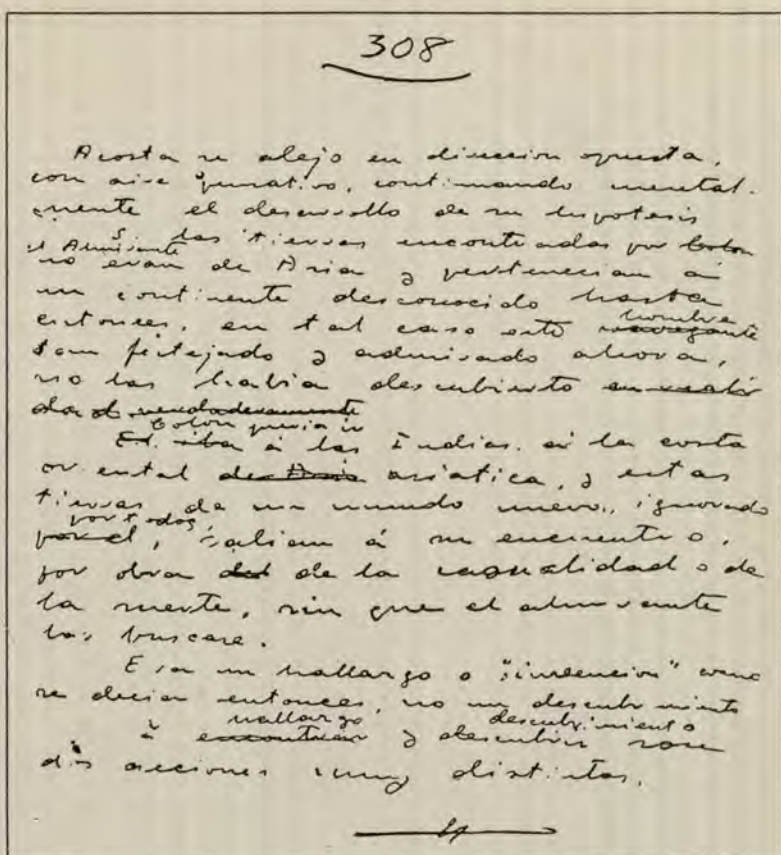 308
Acosta se alejo en direccion opuesta,
con aire pensativo, continuando mental-
mente el desarrollo de su hipotesis
Si las tierras encontradas por Colon
el Almirante
no eran de Asia y pertenecian á
un continente desconocido hasta
hombre
entonces, en tal caso este navegante
tan festejado y admirado ahora,
no las habia descubierto en reali
dad verdaderamente
Colon queria ir
El iba á las Indias. á la costa
oriental de Asia asiatica, y estas
tierras de un mundo nuevo, ignorado
por todos,
por el, salian á su encuentro,
por obra del de la casualidad o de
la suerte, sin que el almirante
las buscase.
Era un hallazgo o "invencion" como
se decia entonces, no un descubrimiento
hallazgo descubrimiento
á encontrar y descubrir son
dos acciones muy distintas.